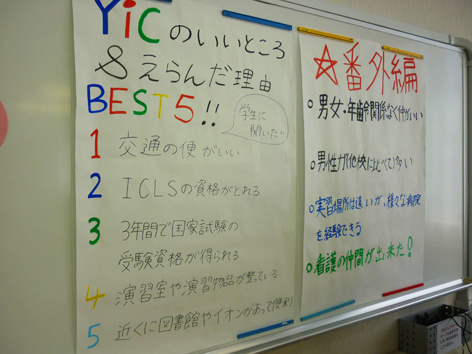 YiCのいいところ
&えらんだ理由
BEST5!!
学生に
聞いた!!
1 交通の便がいい
2 ICLSの資格がとれる
3 3年間で国家試験の
受験資格が得られる
4 演習室や演習物品が整っている
5 近くに図書館やイオンがあって便利!
☆番外編
○男女・年齢関係なく仲がいい
○男性が他校に比べて多い
○実習場所は遠いが、様々な病院
を経験できる
○看護の仲間が出来た!